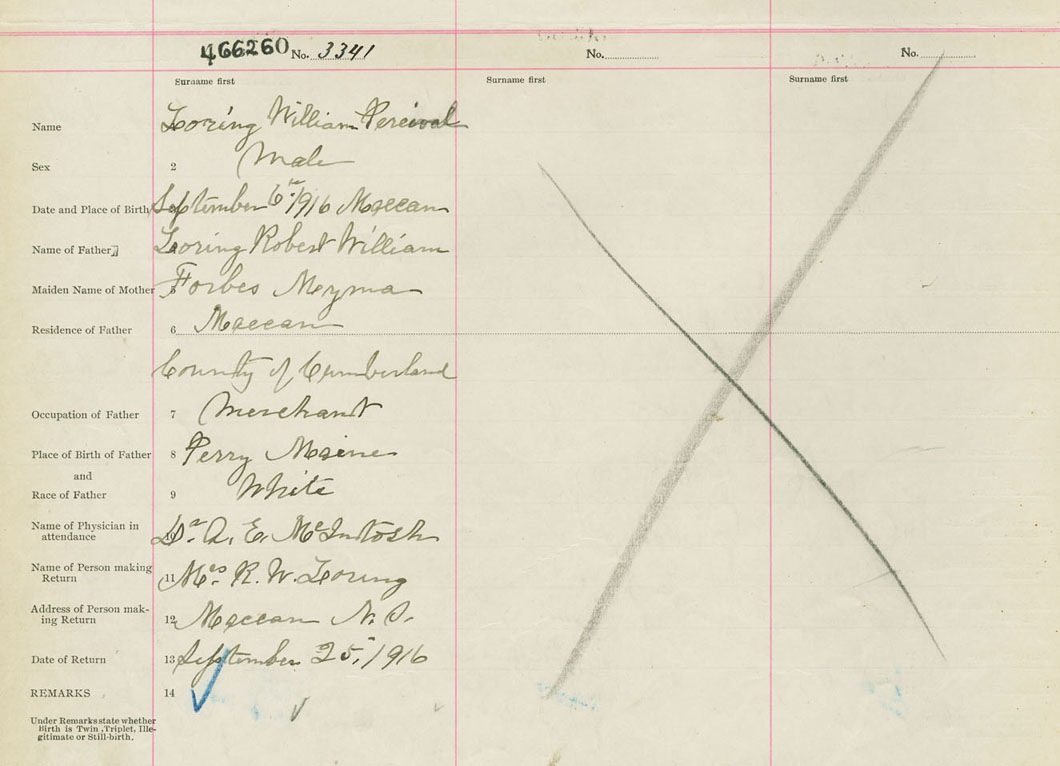 466260 No. 3341 No. No.
Surname first Surname first Surname first
Name Loring William Percival
Sex 2 Male
Date and Place of Birth September 6th 1916 Maccan
Name of Father Loring Robert William
Maiden Name of Mother 5 Forbes Meyma
Residence of Father 6 Maccan
County of Cumberland
Occupation of Father 7 Merchant
Place of Birth of Father 8 Perry Maine
and
Race of Father 9 White
Name of Physician in
attendance 10 Dr. A. E. McIntosh
Name of Person making
Return 11 Mrs. R. W. Loring
Address of Person mak-
ing Return 12 Maccan N.S.
Date of Return 13 September 25, 1916
REMARKS 14
Under Remarks state whether
Birth is Twin, Triplet, Ille-
gitimate or Still-birth.